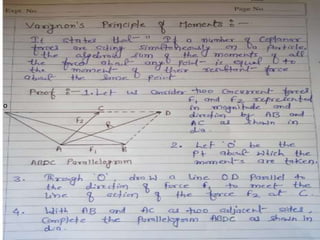 Expt. No.
Page No.
Varignon's Principle of Moments :-
It states that - "If a number of Coplanar
forces are acting simultaneously on a particle,
the algebraic sum of the moments of all
the force about any point is equal to
the moment of their resultant force
about the same point
Proof :- 1. Let us consider two concurrent forces
F1 and F2 represented
in magnitude and
direction by AB and
AC as shown in
dia.
O C D
F2 R
A F1 B
ABDC Parallelogram
2. Let 'O' be the
Pt about which the
moments are taken.
3. Through 'O' draw a line OD Parallel to
the direction of force F1 to meet the
line of action of the force F2 at C.
4. With AB and AC as two adjacent sides,
Complete the Parallelogram ABDC as shown in
dia.